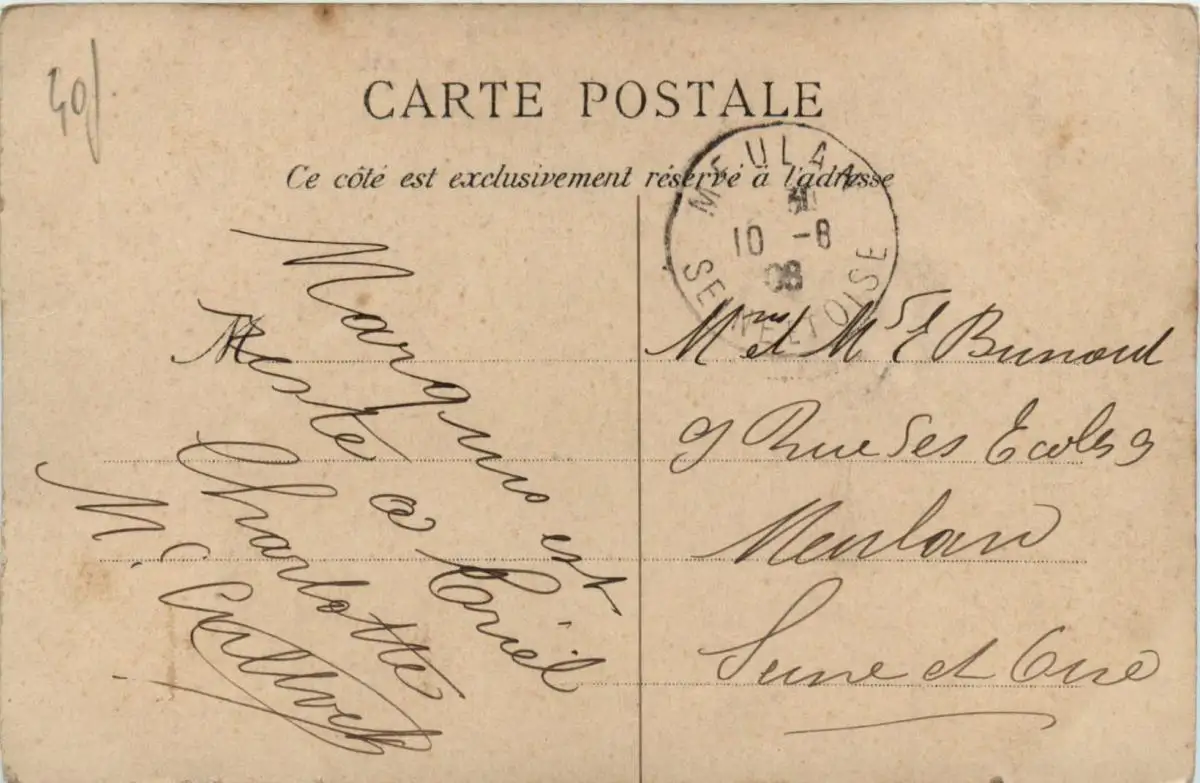 40f
CARTE POSTALE
Ce côté est exclusivement réservé à l'adresse
MEULAN
10 -8
08
SEINE ET OISE
Marquis est
Resté à Criel
Charlotte
M. C.
Mme et Mr E Bunout
9 Rue des Ecoles 9
Meulan
Seine et Oise